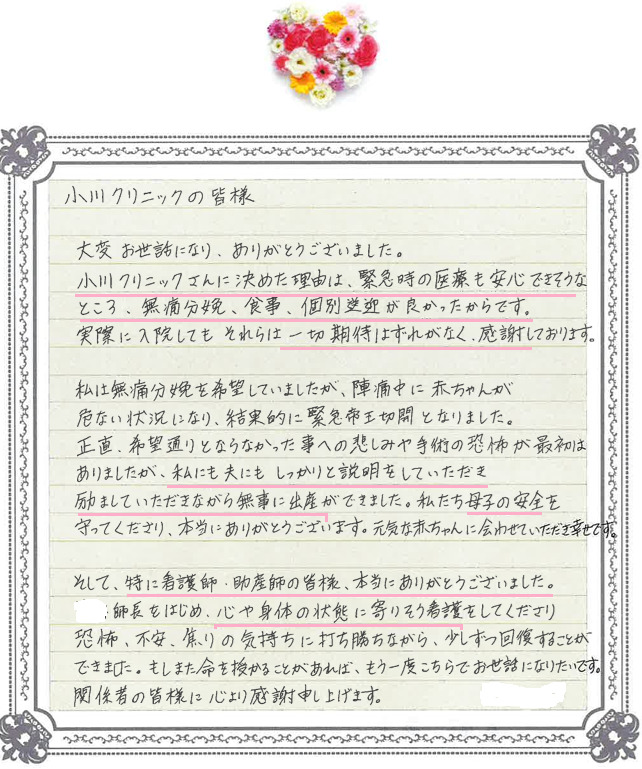 小川クリニックの皆様
大変お世話になり、ありがとうございました。
小川クリニックさんに決めた理由は、緊急時の医療も安心できそうな
ところ、無痛分娩、食事、個別送迎が良かったからです。
実際に入院しても それらは一切期待はずれがなく、感謝しております。
私は無痛分娩を希望していましたが、陣痛中に赤ちゃんが
危ない状況になり、結果的に緊急帝王切開となりました。
正直、希望通りとならなかった事への悲しみや手術の恐怖が最初は
ありましたが、私にも夫にも しっかりと説明をしていただき
励ましていただきながら無事に出産ができました。私たち母子の安全を
守ってくださり、本当にありがとうございます。元気な赤ちゃんに会わせていただき幸せです。
そして、特に看護師・助産師の皆様、本当にありがとうございました。
師長をはじめ、心や身体の状態に寄りそう看護をしてくださり
恐怖、不安、焦りの気持ちに打ち勝ちながら、少しずつ回復することが
できました。もしまた命を授かることがあれば、もう一度こちらでお世話になりたいです。
関係者の皆様に心より感謝申し上げます。